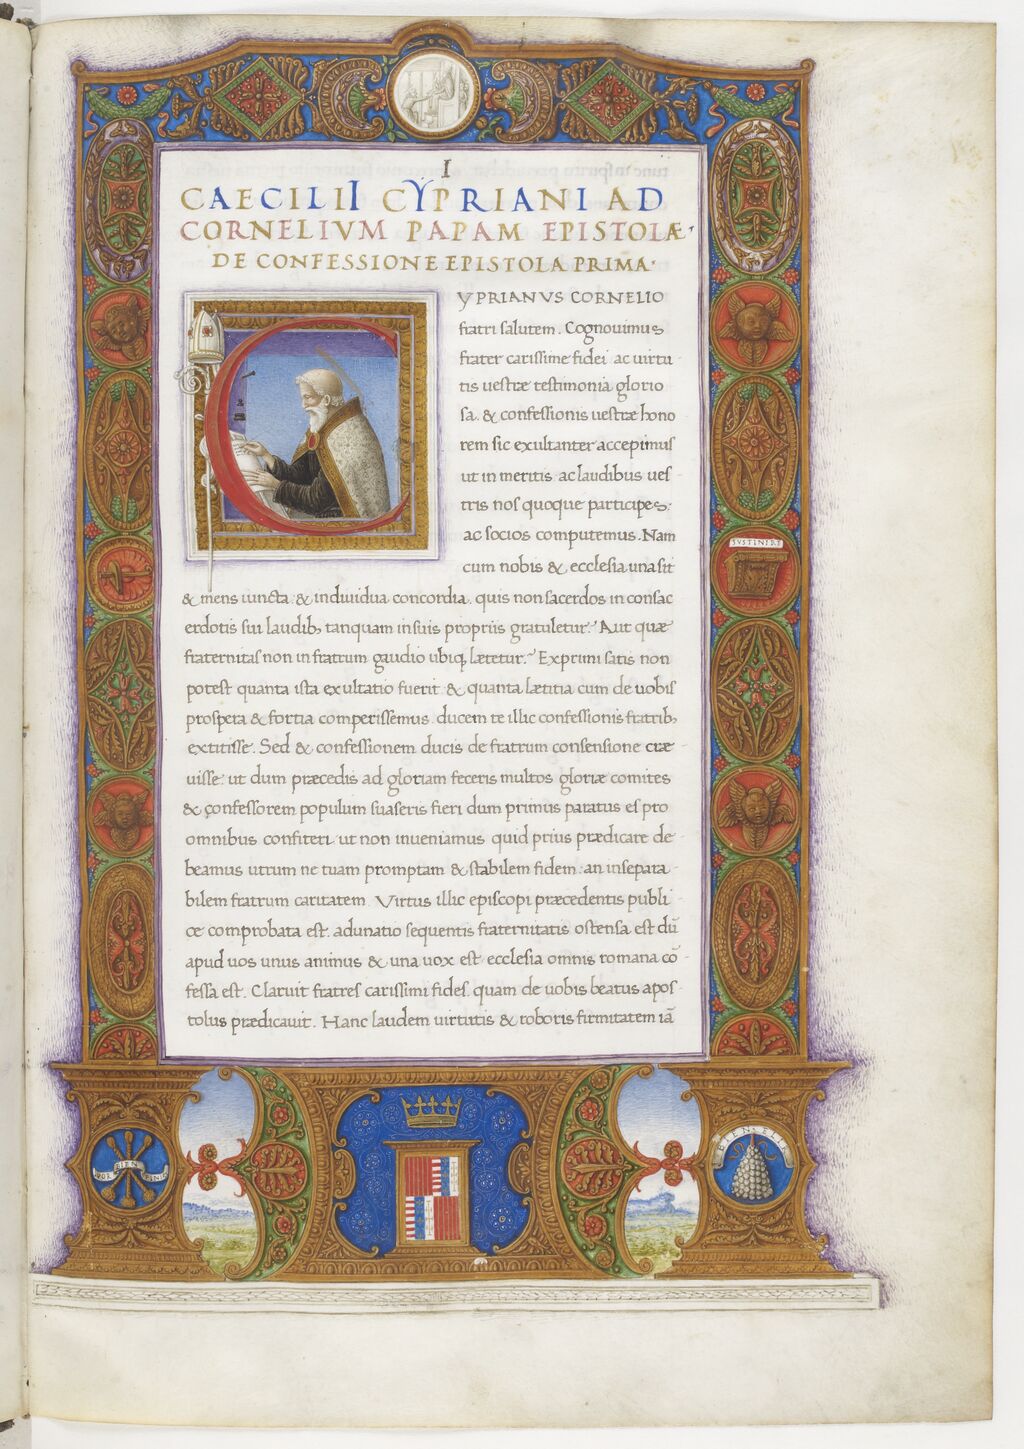 I
CAECILII CYPRIANI AD
CORNELIVM PAPAM EPISTOLÆ
DE CONFESSIONE EPISTOLA PRIMA.
YPRIANVS CORNELIO
fratri salutem. Cognouimus
frater carissime fidei ac uirtu
tis uestræ testimonia glorio
sa. & confessionis uestræ hono
rem sic exultanter accepimus
ut in meritis ac laudibus ues
tris nos quoque participes.
ac socios computemus. Nam
cum nobis & ecclesia una sit
& mens iuncta. & indiuidua concordia. quis non sacerdos in consac
erdotis sui laudib; tanquam in suis propriis gratuletur? Aut quæ
fraternitas non in fratrum gaudio ubiq; lætetur? Exprimi satis non
potest quanta ista exultatio fuerit & quanta lætitia cum de uobis
prospera & fortia comperissemus. ducem te illic confessionis fratrib;
extitisse. Sed & confessionem ducis de fratrum consensione cræ
uisse: ut dum præcedis ad gloriam feceris multos gloriæ comites
& confessorem populum suaseris fieri dum primus paratus es pro
omnibus confiteri. ut non inueniamus quid prius prædicare de
beamus utrum ne tuam promptam & stabilem fidem. an insepara
bilem fratrum caritatem. Virtus illic episcopi præcedentis publi
ce comprobata est. adunatio sequentis fraternitatis ostensa est dū
apud uos unus animus & una uox est ecclesia omnis romana cō
fessa est. Claruit fratres carissimi fides quam de uobis beatus apos
tolus prædicauit. Hanc laudem uirtutis & roboris firmitatem iā
SVSTINERE
BIEN